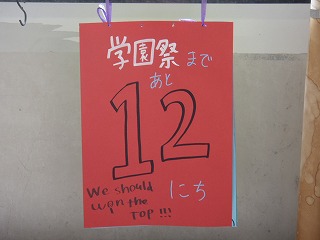 学園祭まで
あと
12
にち
We should
won the
TOP !!!